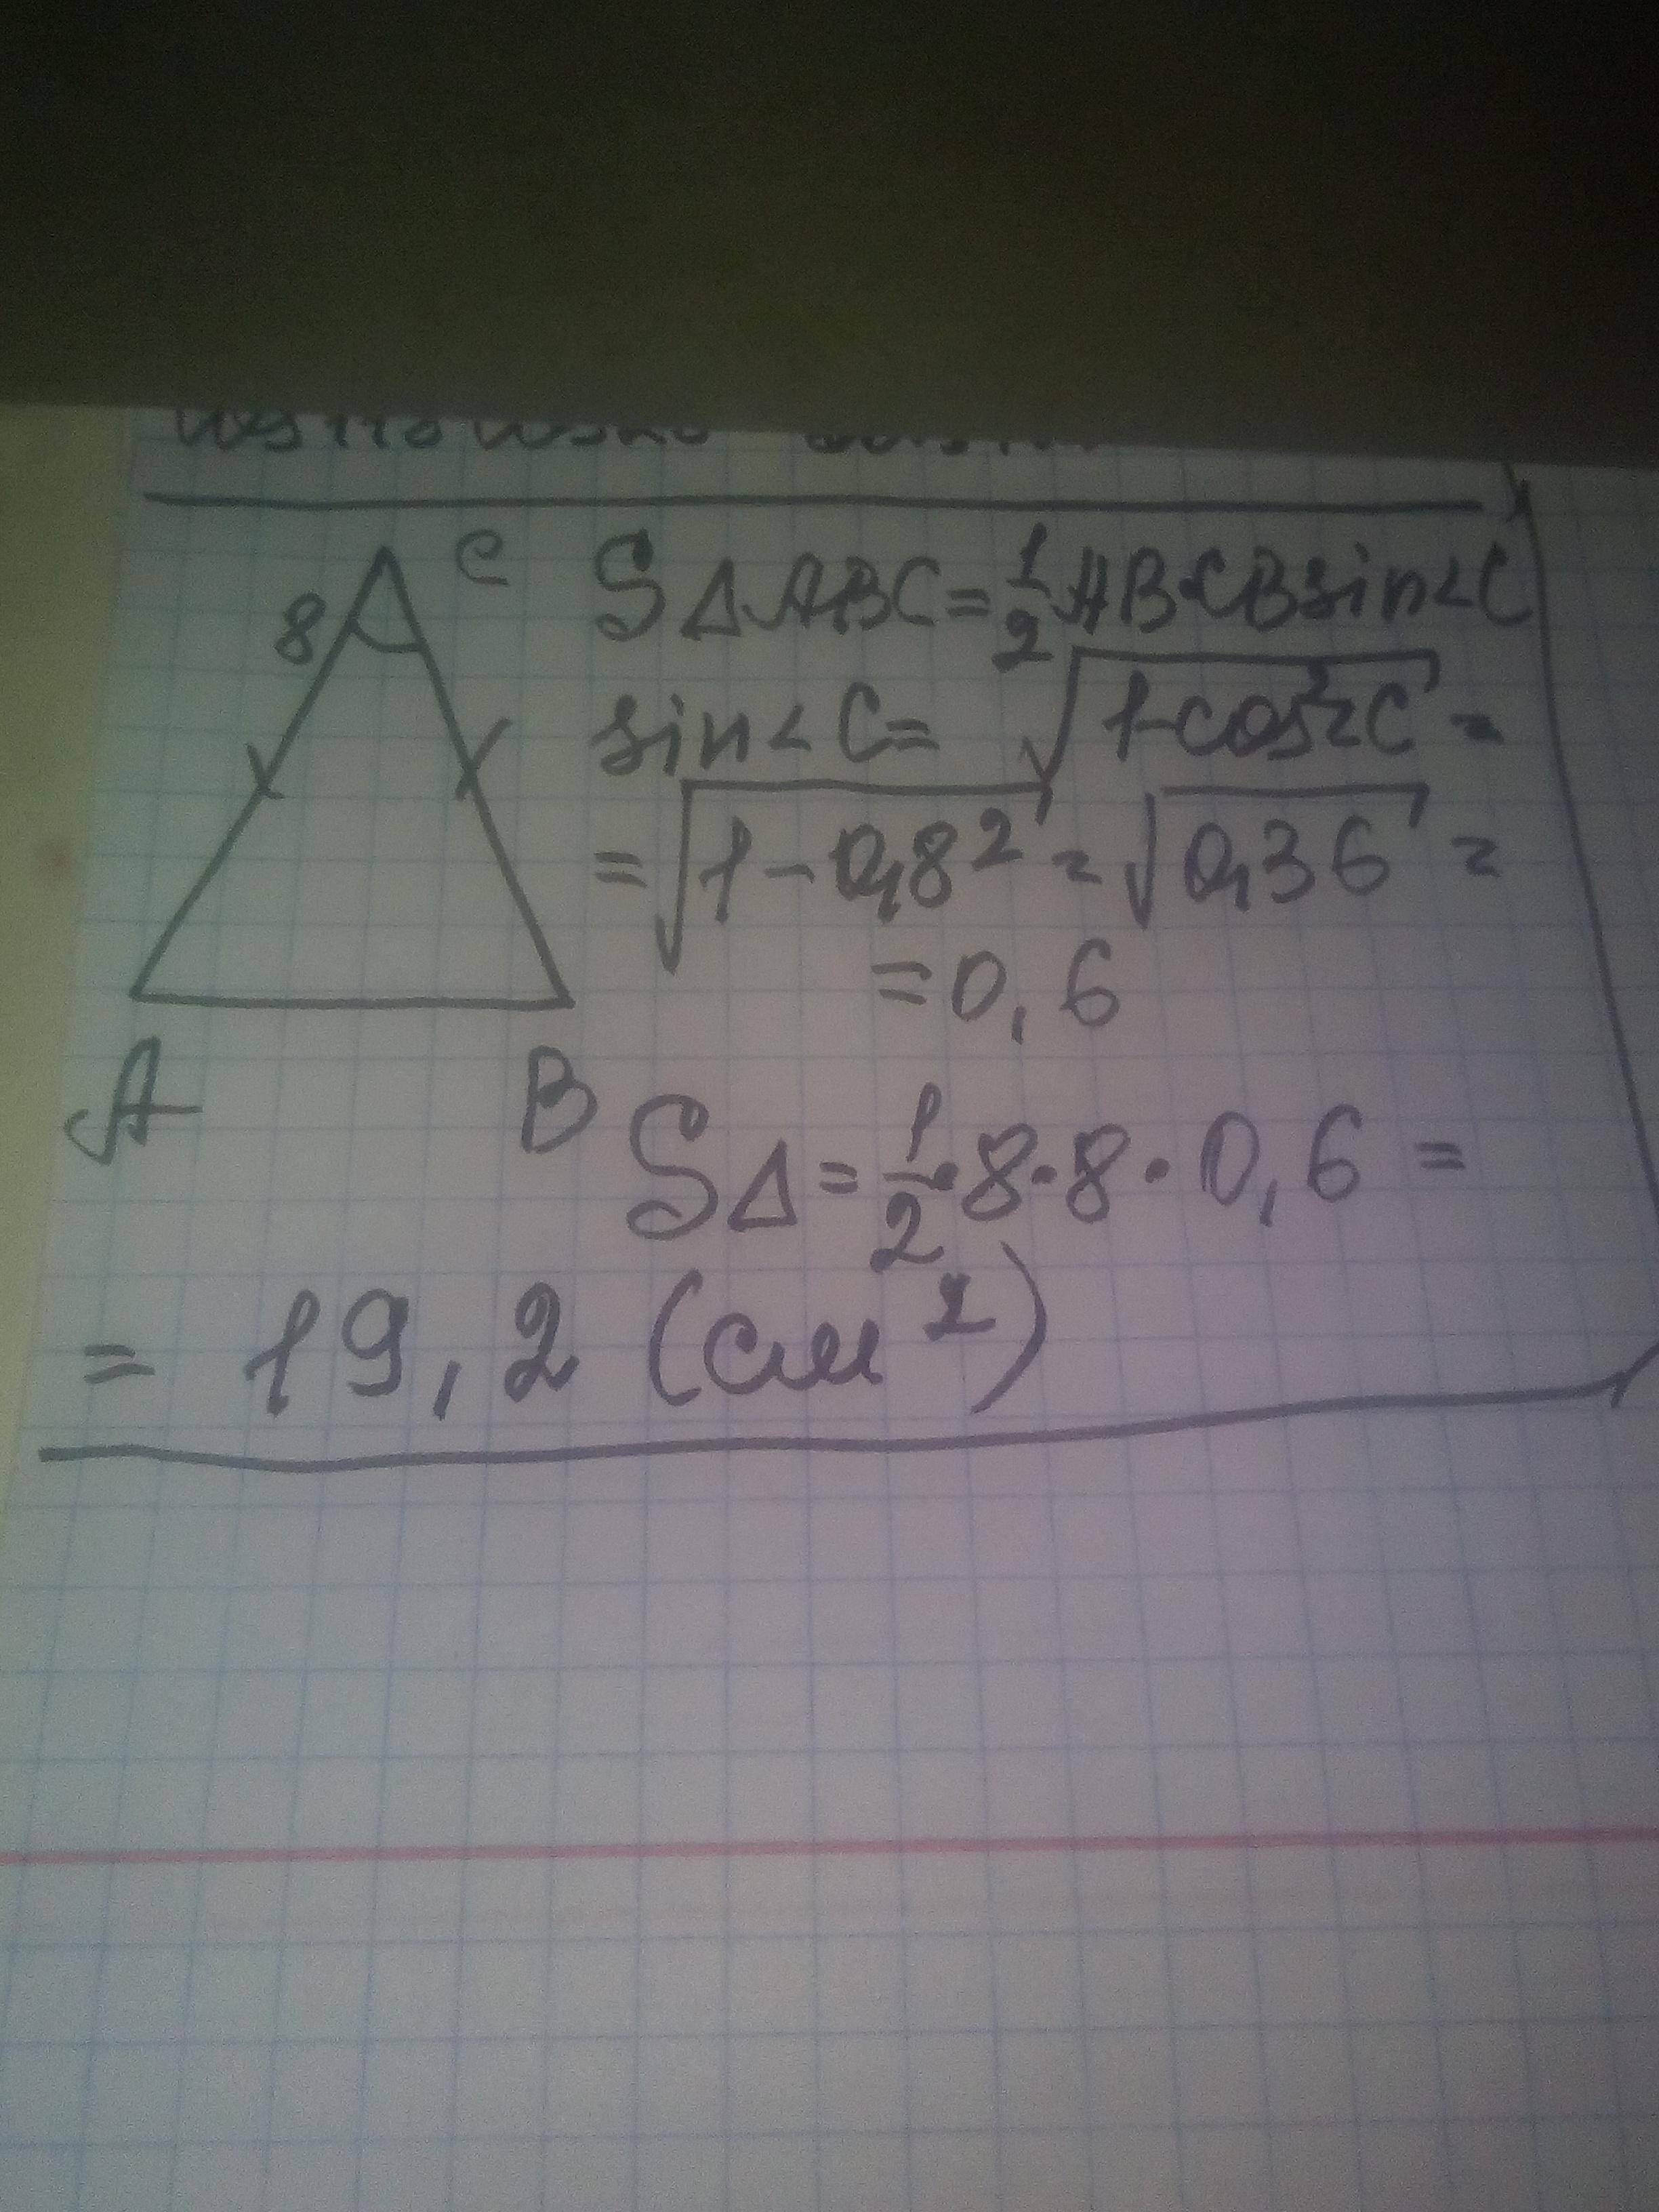 C
8
S△ABC = 1/2 AB·CB sin∠C
sin∠C = √(1-cos²∠C) =
= √(1-0,8²) = √(0,36) =
= 0,6
A
B
S△ = 1/2·8·8·0,6 =
= 19,2 (см²)